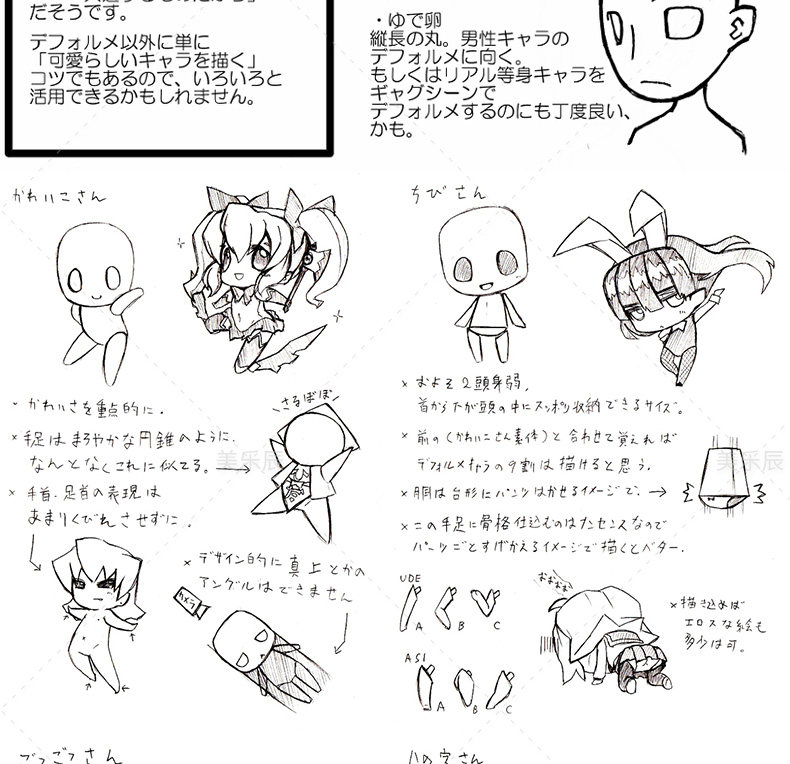 だそうです。
デフォルメ以外に単に
「可愛らしいキャラを描く」
コツでもあるので、いろいろと
活用できるかもしれません。
・ゆで卵
縦長の丸。男性キャラの
デフォルメに向く。
もしくはリアル等身キャラを
ギャグシーンで
デフォルメするのにも丁度良い、
かも。
かわいこさん
× かわいさを重点的に.
× 手足はまろやかな円錐のように.
なんとなくこれに似てる。→
さるぼぼ
× 手首.足首の表現は
あまりくびれさせずに.
× デザイン的に真上とかの
アングルはできません
カメラ
ちびさん
× およそ2頭身弱.
首からたが頭の中にスッポリ収納できるサイズ。
× 前の(かわいこさん素体)と合わせて覚えれば
デフォルメキャラの9割は描けると思う.
× 胴は台形にパンツはかせるイメージで.→
× この手足に骨格仕込むのはナンセンスなので
パーツごとすげかえるイメージで描くとベター.
UDE
A B C
ASI
A B C
おおおお
× 描き込めば
エロスな絵も
多少は可。
美乐辰
美乐辰
ハの字さん